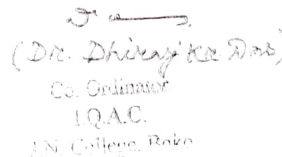 (Dr. Dhiraj Kr. Das)
Co. Ordinator
I.Q.A.C.
J.N. College, Boko